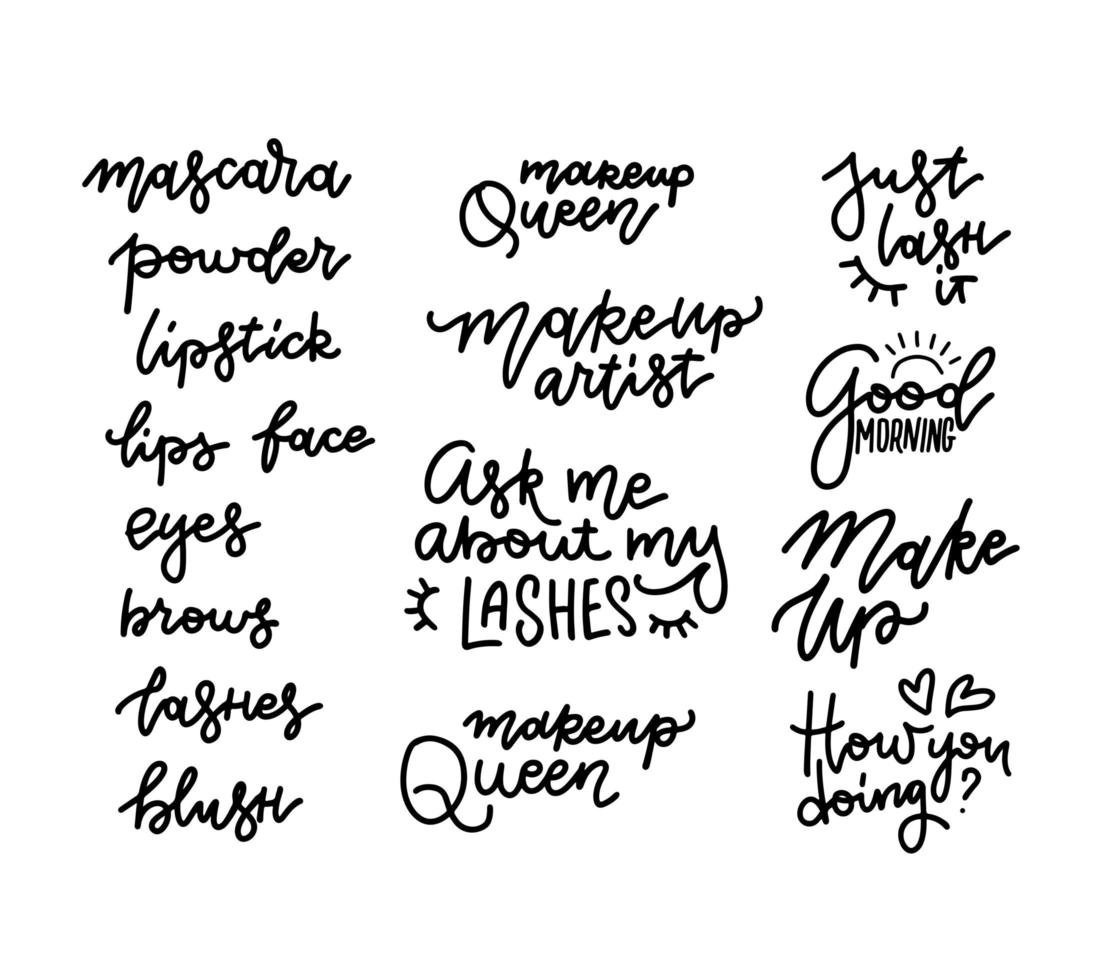 mascara
powder
lipstick
lips face
eyes
brows
lashes
blush
makeup
Queen
Makeup
artist
Ask me
about my
LASHES
makeup
Queen
Just
lash
it
Good
MORNING
Make
Up
How you
doing?